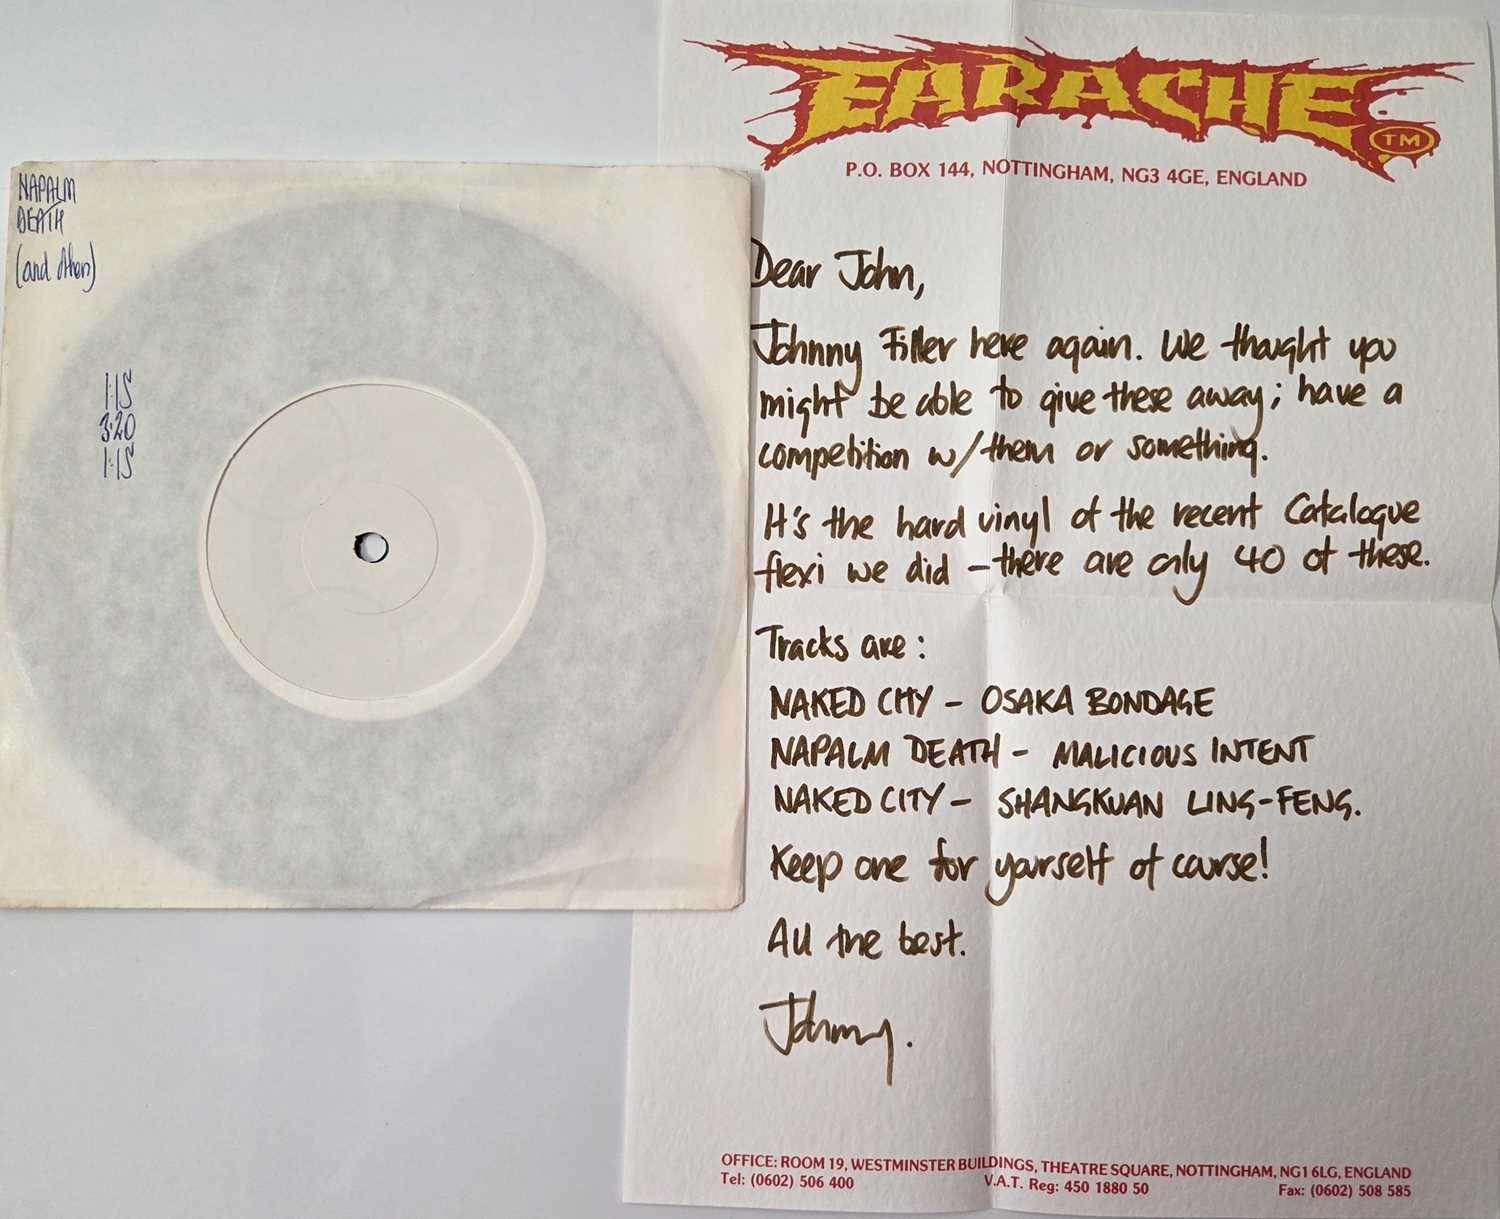 NAPALM
DEATH
(and others)
1:15
3:20
1:15
EARACHE
TM
P.O. BOX 144, NOTTINGHAM, NG3 4GE, ENGLAND
Dear John,
Johnny Filler here again. We thought you
might be able to give these away; have a
competition w/them or something.
It's the hard vinyl of the recent Catalogue
flexi we did - there are only 40 of these.
Tracks are:
NAKED CITY - OSAKA BONDAGE
NAPALM DEATH - MALICIOUS INTENT
NAKED CITY - SHANGKUAN LING-FENG.
Keep one for yourself of course!
All the best.
Johnny.
OFFICE: ROOM 19, WESTMINSTER BUILDINGS, THEATRE SQUARE, NOTTINGHAM, NG1 6LG, ENGLAND
Tel: (0602) 506 400 V.A.T. Reg: 450 1880 50 Fax: (0602) 508 585